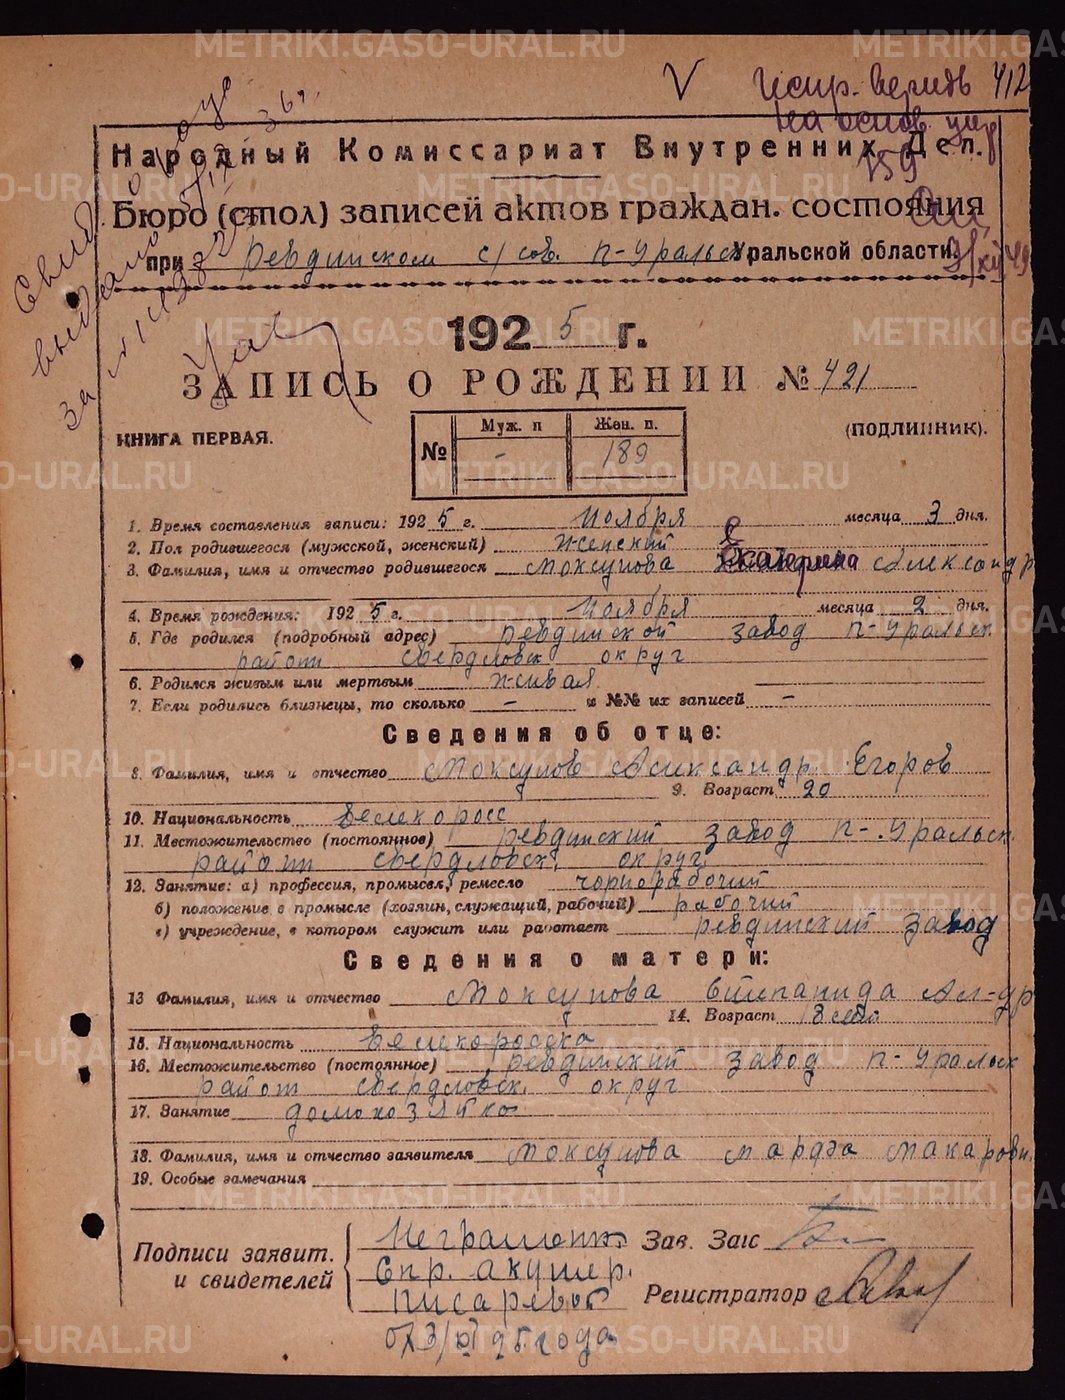 METRIKI.GASO-URAL.RU
V
412
Испр. верить
на основ.
159
Свид.
выдано
за №
Народный Комиссариат Внутренних Дел.
Бюро (стол) записей актов граждан. состояния
при Ревдинском с/сов. П-Уральск Уральской области.
1925 г.
ЗАПИСЬ О РОЖДЕНИИ № 421
КНИГА ПЕРВАЯ.
№ Муж. п Жен. п.
- 189
(ПОДЛИННИК).
1. Время составления записи: 1925 г. Ноября месяца 3 дня.
2. Пол родившегося (мужской, женский) женский
3. Фамилия, имя и отчество родившегося Моксунова Екатерина Александр
4. Время рождения: 1925 г. Ноября месяца 2 дня.
5. Где родился (подробный адрес) Ревдинской завод П-Уральск
район Свердловск округ
6. Родился живым или мертвым живая
7. Если родились близнецы, то сколько - и №№ их записей -
Сведения об отце:
8. Фамилия, имя и отчество Моксунов Александр Егоров
9. Возраст 20
10. Национальность великоросс
11. Местожительство (постоянное) Ревдинский завод П-Уральск.
район Свердловск. округ.
12. Занятие: а) профессия, промысел, ремесло чорнорабочий
б) положение в промысле (хозяин, служащий, рабочий) рабочий
в) учреждение, в котором служит или работает Ревдинский завод
Сведения о матери:
13 Фамилия, имя и отчество Моксунова Степанида Ал-др
14. Возраст 18 лет
15. Национальность великоросска
16. Местожительство (постоянное) Ревдинский завод П-Уральск
район Свердловск. округ
17. Занятие домохозяйка
18. Фамилия, имя и отчество заявителя Моксунова Марфа Макаровн.
19. Особые замечания
Подписи заявит.
и свидетелей
Неграмотн
Спр. акушер.
Писаревой
от 3/XI 25 года
Зав. Загс
Регистратор